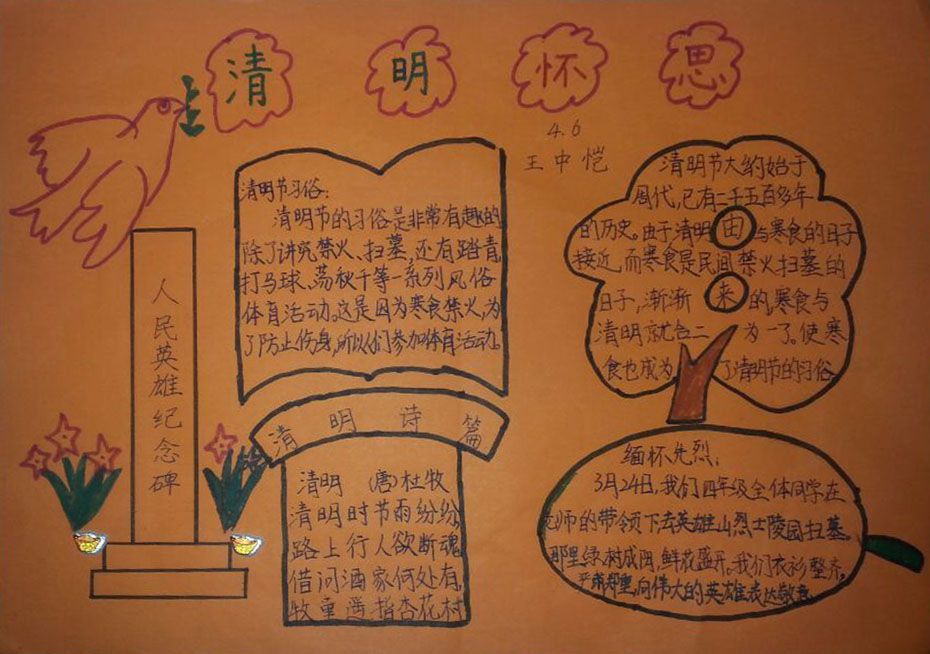 清明怀思
4.6
王中恺
人民英雄纪念碑
清明节习俗:
清明节的习俗是非常有趣的
除了讲究禁火、扫墓,还有踏青
打马球、荡秋千等一系列风俗
体育活动。这是因为寒食禁火,为
了防止伤身,所以们参加体育活动。
清明诗篇
清明 (唐)杜牧
清明时节雨纷纷,
路上行人欲断魂
借问酒家何处有,
牧童遥指杏花村
由来
清明节大约始于
周代,已有二千五百多年
的历史。由于清明与寒食的日子
接近,而寒食是民间禁火扫墓的
日子,渐渐的,寒食与
清明就合二为一了。使寒
食也成为了清明节的习俗
缅怀先烈:
3月24日,我们四年级全体同学在
老师的带领下去英雄山烈士陵园扫墓。
那里绿树成阴,鲜花盛开。我们衣衫整齐,
向伟大的英雄表达敬意